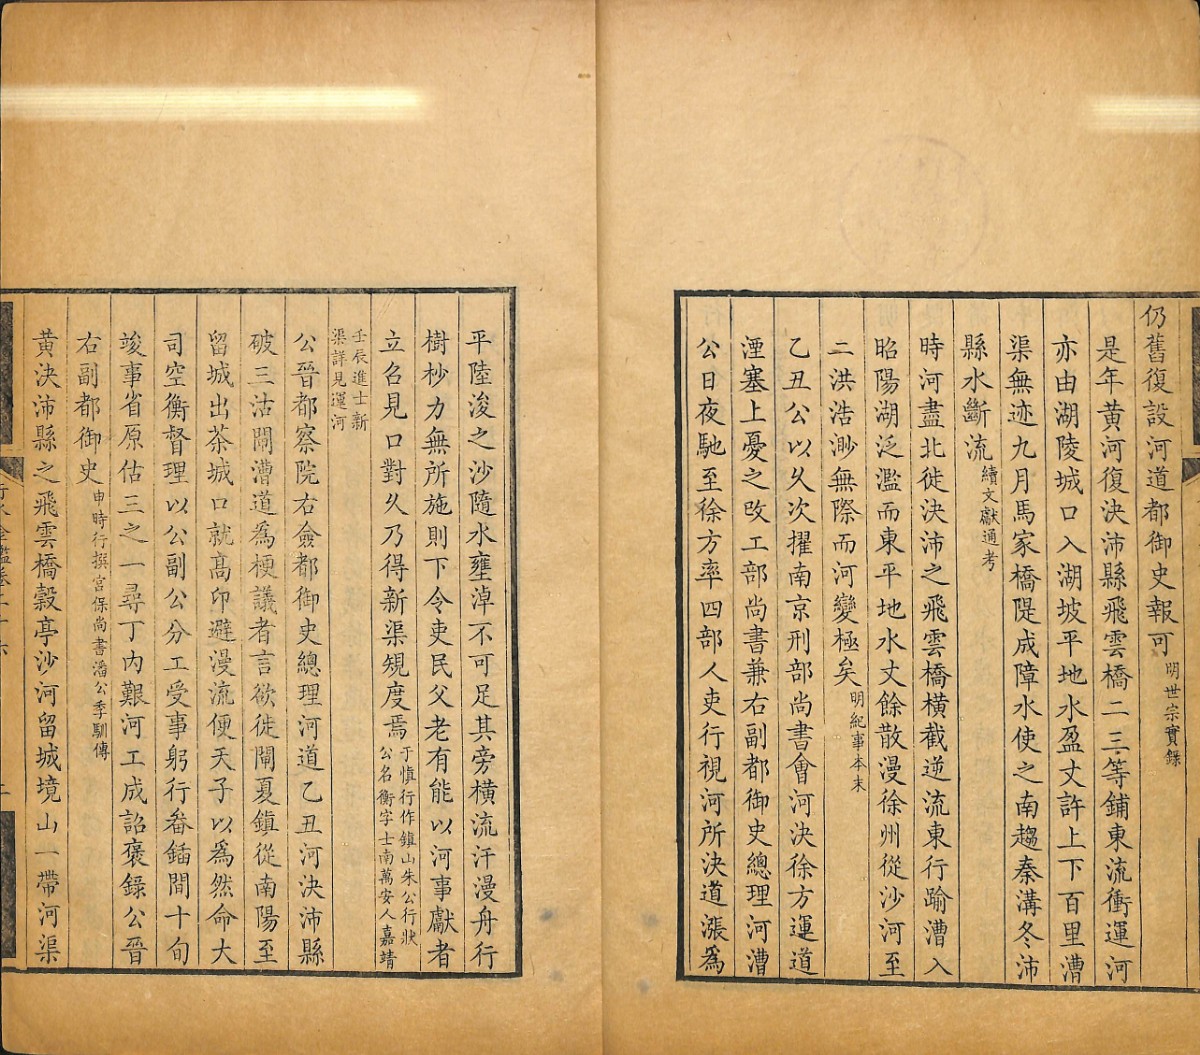 仍舊復設河道都御史報可明世宗實錄
是年黃河復決沛縣飛雲橋二三等鋪東流衝運河
亦由湖陵城口入湖坡平地水盈丈許上下百里漕
渠無迹九月馬家橋隄成障水使之南趨秦溝冬沛
縣水斷流續文獻通考
時河盡北徙決沛之飛雲橋橫截逆流東行踰漕入
昭陽湖泛濫而東平地水丈餘散漫徐州從沙河至
二洪浩渺無際而河變極矣明紀事本末
乙丑公以久次擢南京刑部尚書會河決徐方運道
湮塞上憂之改工部尚書兼右副都御史總理河漕
公日夜馳至徐方率四部人吏行視河所決道漲為
平陸浚之沙隨水壅淖不可足其旁橫流汗漫舟行
樹杪力無所施則下令吏民父老有能以河事獻者
立召見口對久乃得新渠䂓度焉于慎行作鎮山朱公行狀
公名衡字士南萬安人嘉靖
壬辰進士新
渠詳見運河
公晉都察院右僉都御史總理河道乙丑河決沛縣
破三沽閘漕道為梗議者言欲徙閘夏鎮從南陽至
留城出茶城口就高卬避漫流便天子以為然命大
司空衡督理以公副公分工受事躬行畚鍤間十旬
竣事省原估三之一尋丁內艱河工成詔褒錄公晉
右副都御史申時行撰宮保尚書潘公季馴傳
黃決沛縣之飛雲橋穀亭沙河留城境山一帶河渠